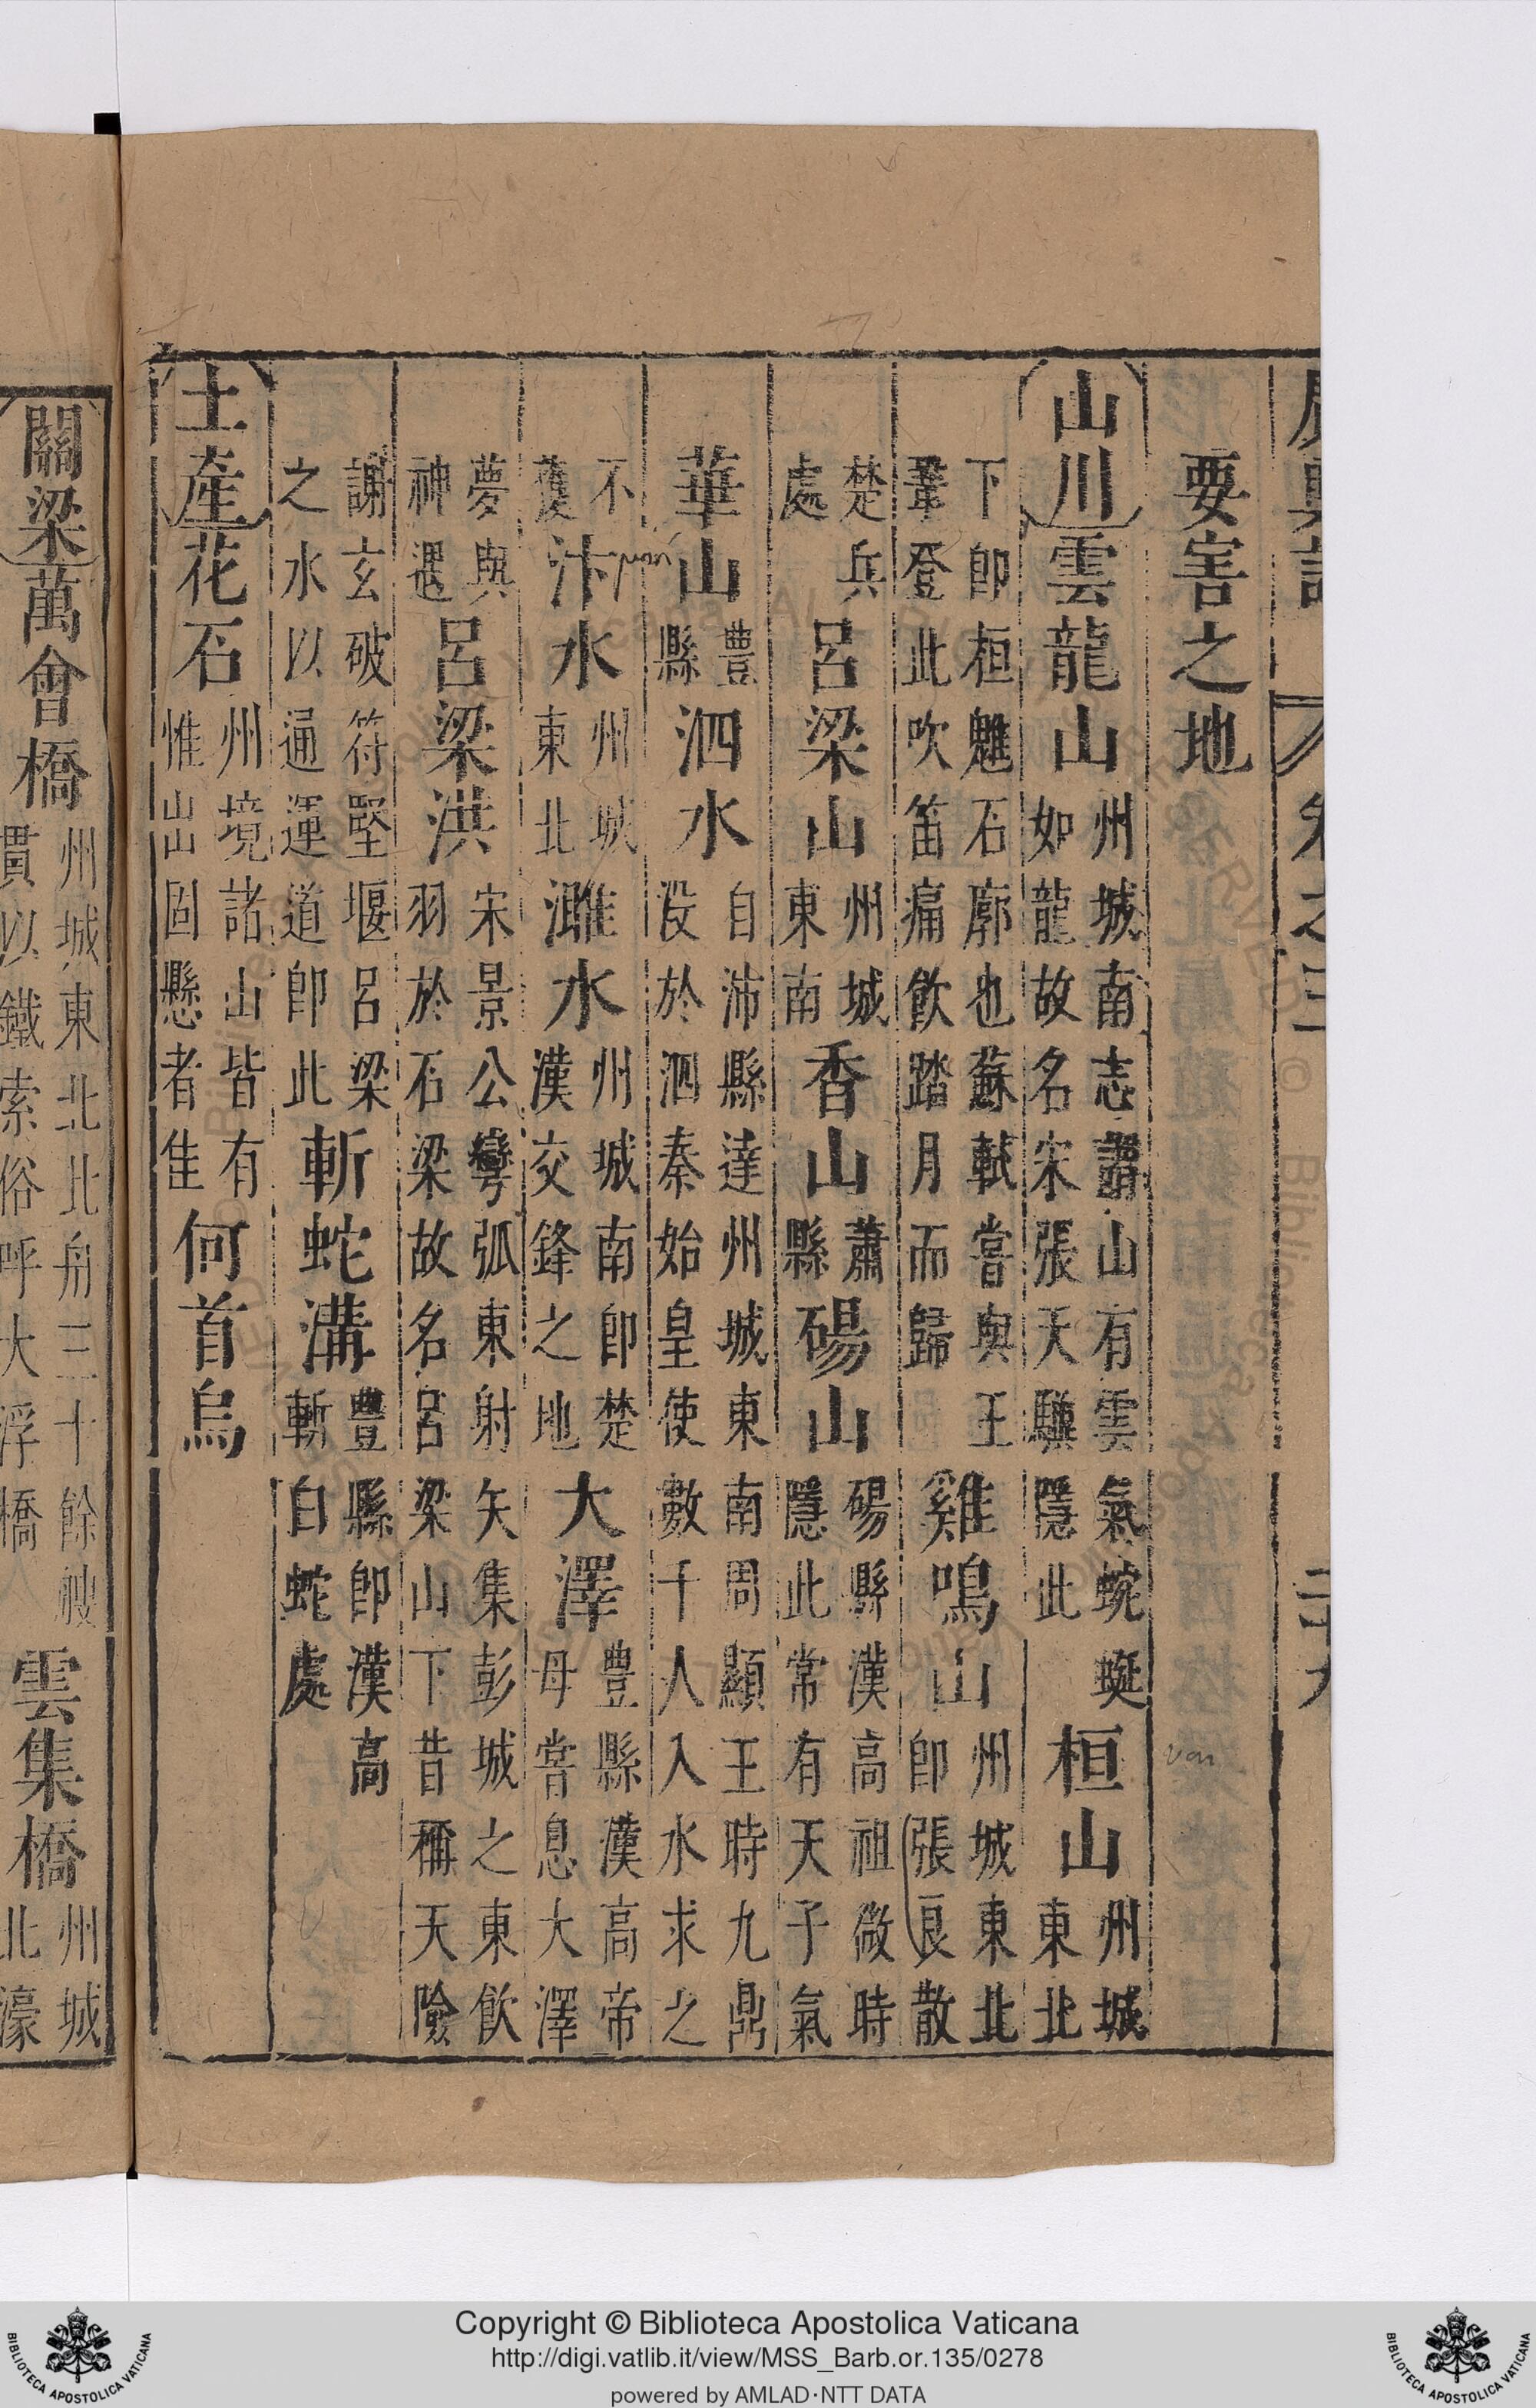 要害之地
山川雲龍山州城南志謂山有雲氣蜿蜒如龍故名宋張天驥隱此桓山州城東北
下即桓魋石廓也蘇軾嘗與王鞏登此吹笛痛飲踏月而歸雞鳴山州城東北即張良散
楚兵處呂梁山州城東南香山蕭縣碭山碭縣漢高祖微時隱此常有天子氣
華山豐縣泗水自沛縣達州城東南周顯王時九鼎没於泗秦始皇使數千人入水求之
不獲汴水州城東北濉水州城南即楚漢交鋒之地大澤豐縣漢高帝母嘗息大澤
夢與神遇呂梁洪宋景公彎弧東射矢集彭城之東飲羽於石梁故名呂梁山下昔稱天險
謝玄破符堅堰呂梁之水以通運道即此斬蛇溝豐縣即漢高斬白蛇處
土產花石州境諸山皆有惟出固懸者佳何首烏
關梁萬會橋州城東北北舟三十餘艘貫以鐵索俗呼大浮橋雲集橋州城北濠
Copyright © Biblioteca Apostolica Vaticana
http://digi.vatlib.it/view/MSS_Barb.or.135/0278
powered by AMLAD·NTT DATA
BIBLIOTECA APOSTOLICA VATICANA
BIBLIOTECA APOSTOLICA VATICANA